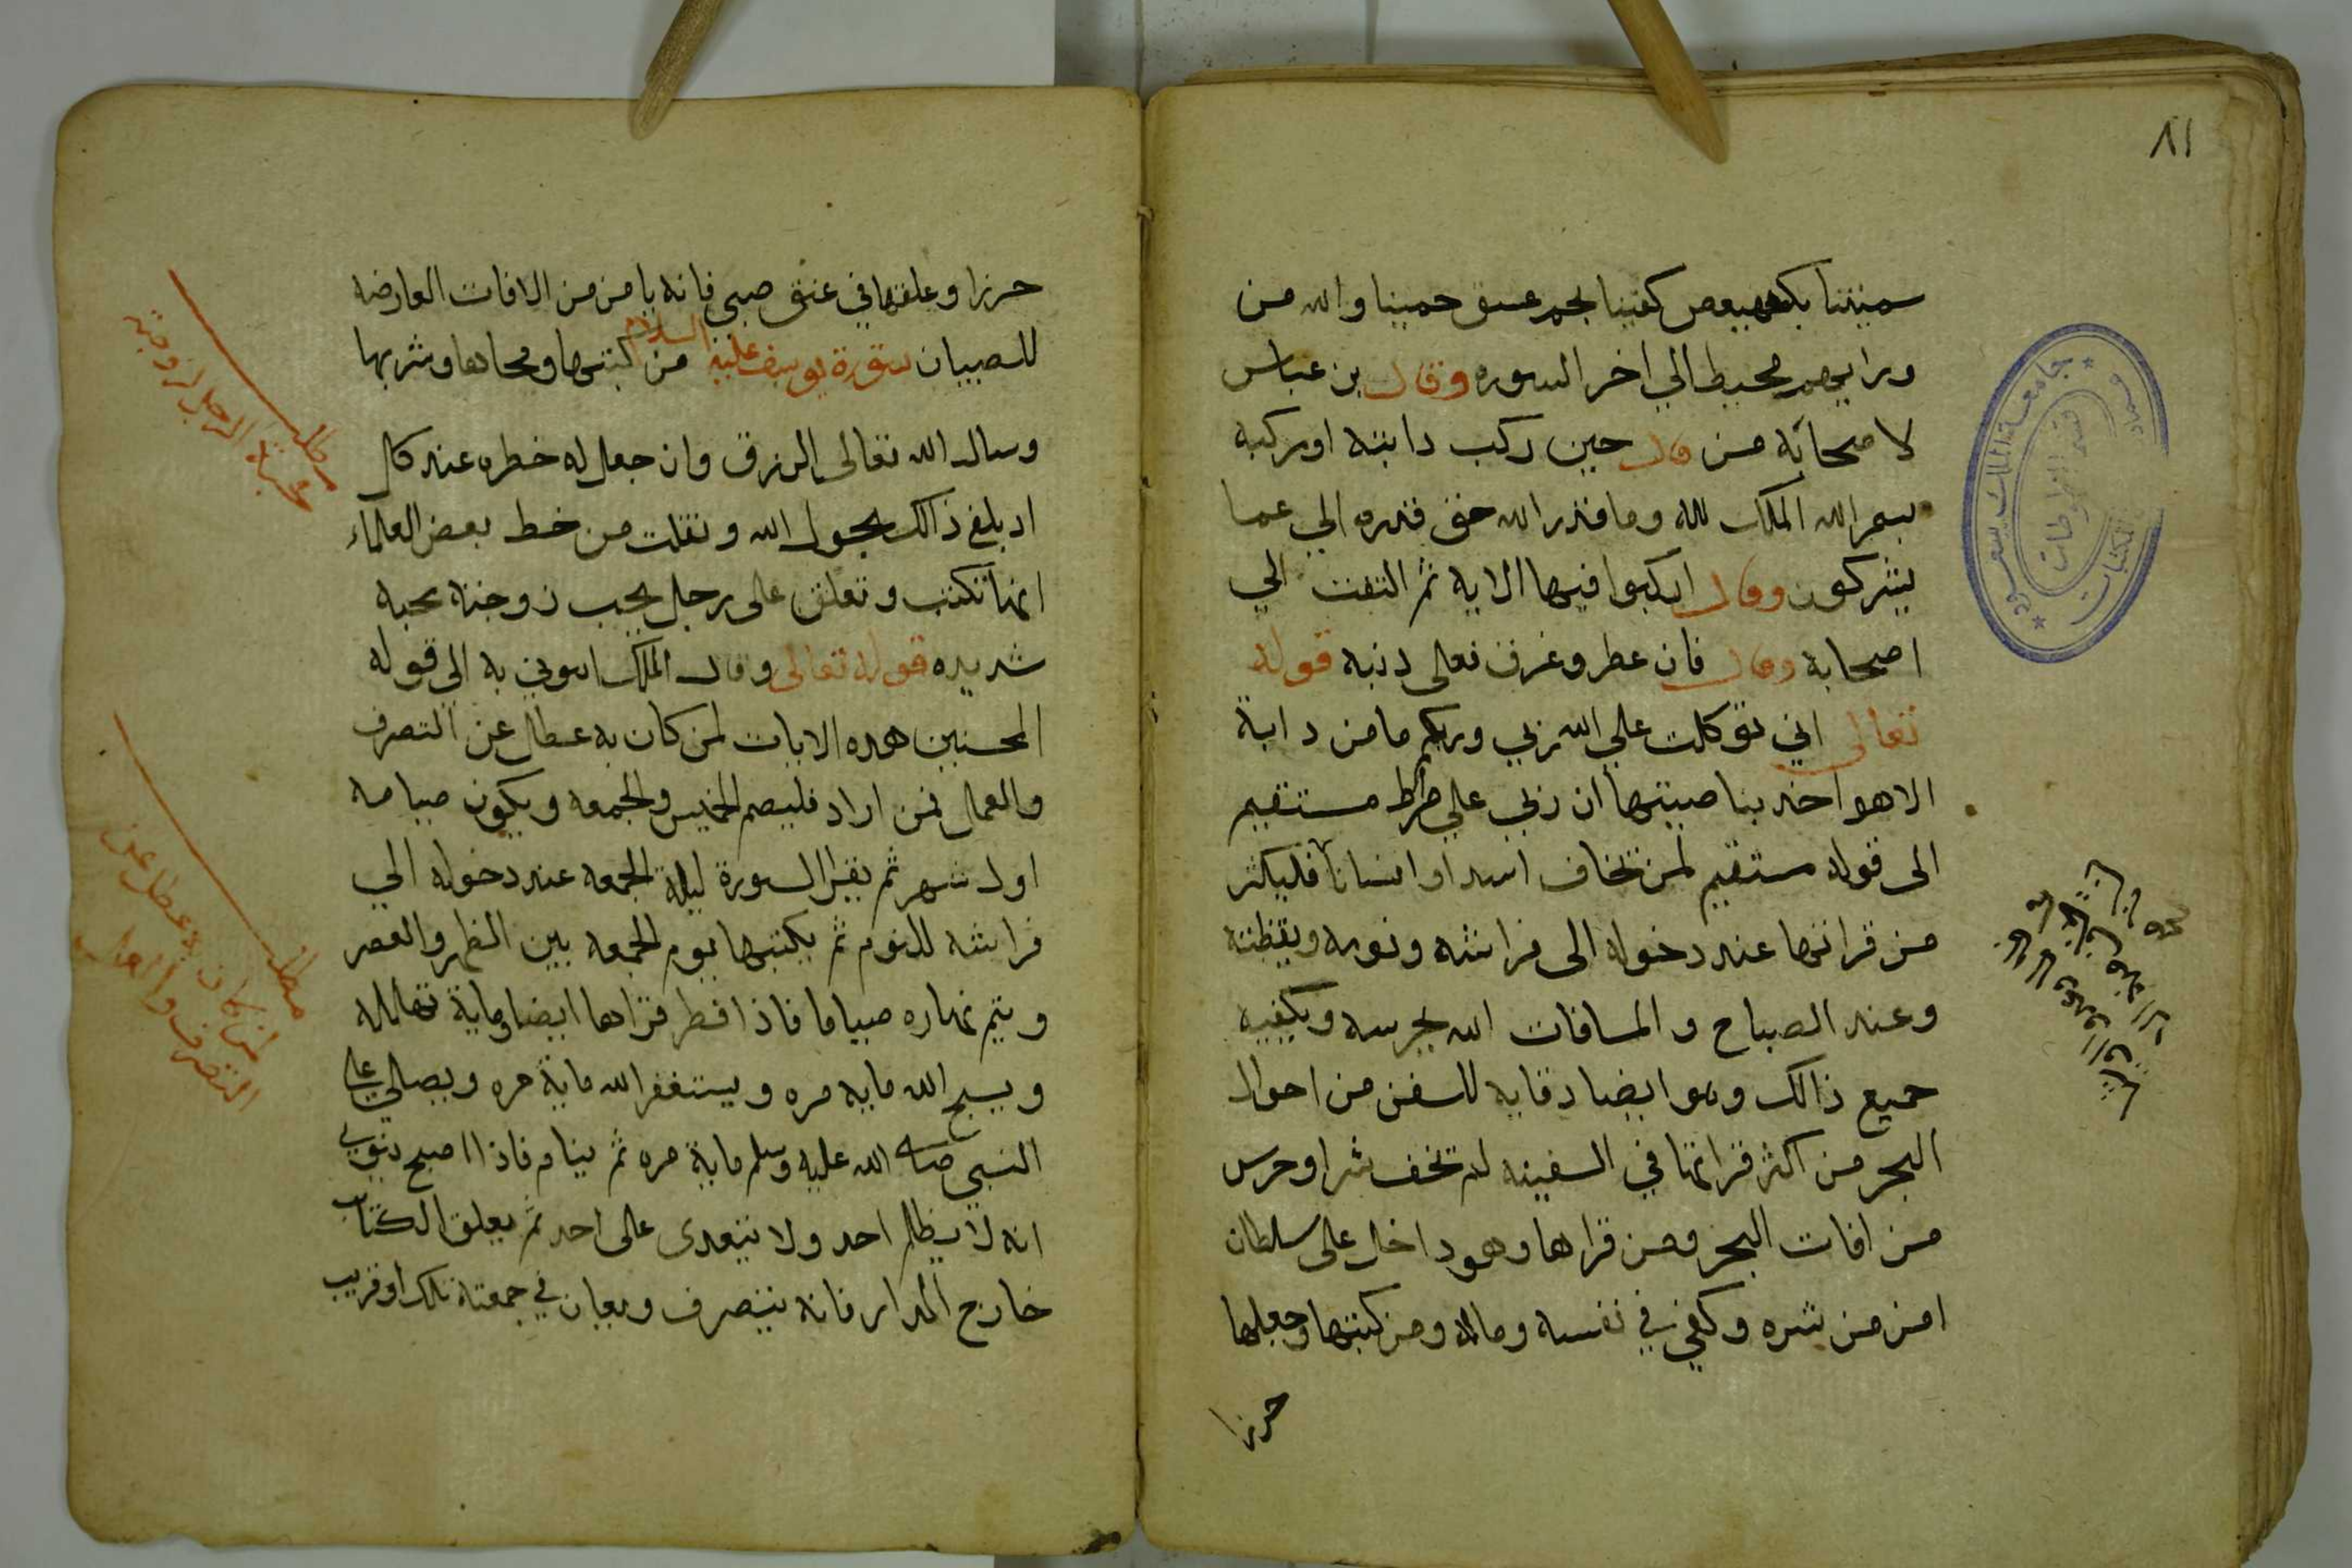 ٨١
سفينتنا بكهيعص كفينا بحمعسق حمينا والله من
ورايهم محيط الي اخر السوره وقال بن عباس
لاصحابه من قال حين ركب دابته او مركبه
بسم الله الملك لله وما قدر الله حق قدره الي عما
يشركون وقال اركبوا فيها الاية ثم التفت الي
اصحابه وقال فان عطر وغرق فعلى دنبه قوله
تعالى اني توكلت علي الله ربي وربكم ما من دابة
الا هو اخد بناصيتها ان ربي علي صراط مستقيم
الى قوله مستقيم لمن تخاف اسد او انسانا فليكثر
من قراتها عند دخوله الى فراشه ونومه ويقظته
وعند الصباح والمسافات الله يحرسه ويكفيه
جميع ذالك وهو ايضا دقايه للسفن من احوال
البحر من اكثر قراتها في السفينه لم تخف شرا وحرس
من افات البحر ومن قراها وهو داخل على سلطان
امن من شره وكفي في نفسه وماله ومن كتبها وجعلها
حرزا
جامعة الملك سعود
قسم المخطوطات
حرزا وعلقها في عنق صبي فانه يامن من الافات العارضه
للصبيان سورة يوسف عليه السلام من كتبها ومحاها وشربها
وسال الله تعالى الرزق وان جعل له خطره عند كل
احد بلغ ذالك بحول الله ونقلت من خط بعض العلماء
انها تكتب وتعلق على رجل يحب زوجته محبه
شديده قوله تعالى وقال الملك اتوني به الي قوله
المحسنين هده الايات لمن كان به عطال عن التصرف
والعمال فمن اراد فليصم الخميس والجمعه ويكون صيامه
اول شهر ثم يقرا السورة ليلة الجمعه عند دخوله الي
فراشه للنوم ثم يكتبها يوم الجمعه بين الظهر والعصر
ويتم نهاره صياما فاذا افطر قراها ايضا وماية تهاليله
ويسبح الله مايه مره ويستغفر الله ماية مره ويصالي علي
النبي صلى الله عليه وسلم ماية مره ثم ينام فاذا اصبح ينوي
انه لا يظلم احد ولا يتعدى على احد ثم يعلق الكتاب
خارج الدار فانه يتصرف ويعان في جمعته تلك او قريب
مطلب
لمحبة الرجل لزوجته
مطلب
لمن كان به عطل عن
التصرف والعمال